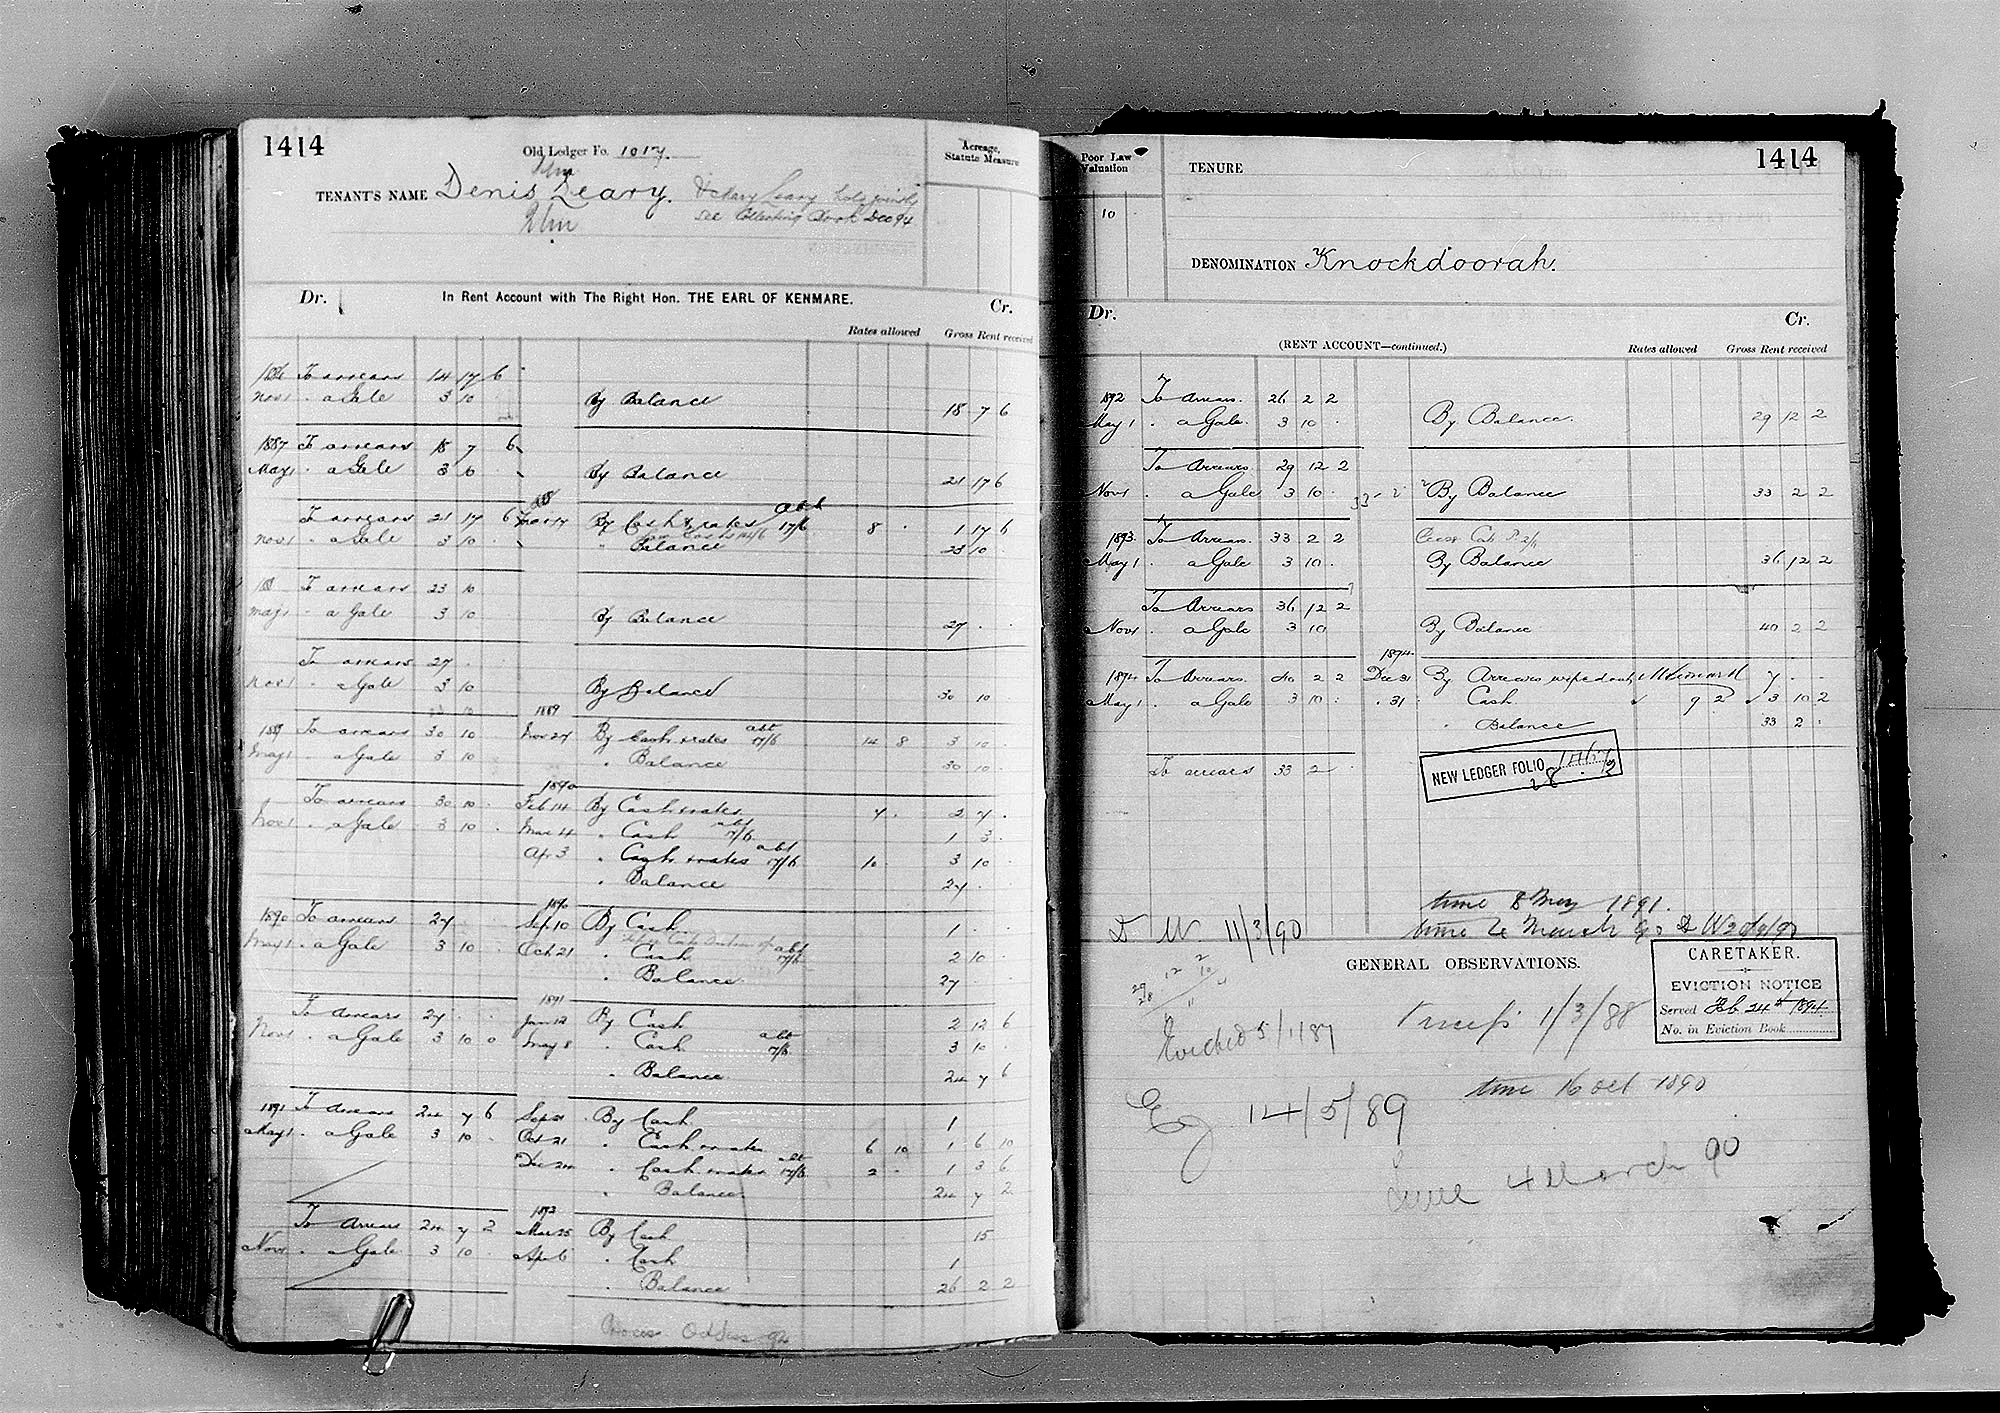 1414
Old Ledger Fo. 1017.
Acreage,
Statute Measure
TENANT'S NAME Denis Leary. & Mary Leary hold jointly
see Collecting Book Dec 94
Dr. In Rent Account with The Right Hon. THE EARL OF KENMARE. Cr.
Rates allowed Gross Rent received
1886 To arrears 14 17 6
Nov 1 . a Gale 3 10 By Balance 18 7 6
1887 To arrears 18 7 6
May 1 . a Gale 3 10 By Balance 21 17 6
To arrears 21 17 6 By Cash & rates abt 17/6 8 . 1 17 6
Nov 1 . a Gale 3 10 . " Balance 23 10
To arrears 23 10
May 1 . a Gale 3 10 By Balance 27 . .
To arrears 27
Nov 1 . a Gale 3 10 By Balance 30 10
1889
1889 To arrears 30 10 Nov 27 By Cash & rates abt 17/6 14 8 3 10 .
May 1 . a Gale 3 10 " Balance 30 10 .
1890
To arrears 30 10 . Feb 14 By Cash & rates 7 . 2 7 .
Nov 1 . a Gale 3 10 . Mar 4 " Cash abt 7/6 1 3 .
Apr 3 " Cash & rates abt 17/6 10 3 10 .
" Balance 27 .
1890
1890 To arrears 27 . Sep 10 By Cash 1 .
May 1 . a Gale 3 10 . Oct 21 " Cash abt 17/6 2 10 .
" Balance 27 .
1891
To arrears 27 . . Jan 12 By Cash 2 12 6
Nov 1 . a Gale 3 10 0 May 8 " Cash abt 17/6 3 10 .
" Balance 24 7 6
1891 To arrears 24 7 6 Sep 21 By Cash 1
May 1 . a Gale 3 10 . Oct 21 " Cash & rates 6 10 1 6 10
Dec 24 " Cash & rates abt 17/6 2 . 1 3 6
" Balance 24 7 2
1892
To arrears 24 7 2 Mar 25 By Cash 15
Nov 1 . a Gale 3 10 . Apr 6 " Cash 1
" Balance 26 2 2
1414
Poor Law
Valuation
TENURE
10
DENOMINATION Knockdoorah.
Dr. Cr.
(RENT ACCOUNT—continued.) Rates allowed Gross Rent received
1892 To arrears. 26 2 2
May 1 . a Gale. 3 10 . By Balance. 29 12 2
To Arrears 29 12 2
Nov 1 . a Gale 3 10 . By Balance 33 2 2
1893 To Arrears. 33 2 2
May 1 . a Gale 3 10 . By Balance 36 12 2
To Arrears 36 12 2
Nov 1 . a Gale 3 10 By Balance 40 2 2
1894
1894 To Arrears. 40 2 2 Dec 31 By Arrears wiped out 7 . .
May 1 . a Gale 3 10 . . 31 " Cash. 9 2 3 10 2
" Balance 33 2 .
To arrears 33 2 .
NEW LEDGER FOLIO
time 8 May 1891.
11/3/90 time 4 March 90
GENERAL OBSERVATIONS.
CARETAKER.
EVICTION NOTICE
Served Feb. 24th 1894
No. in Eviction Book
Evicted 5/1/87
1/3/88
time 16 Oct 1890
14/5/89
time 4 March 90